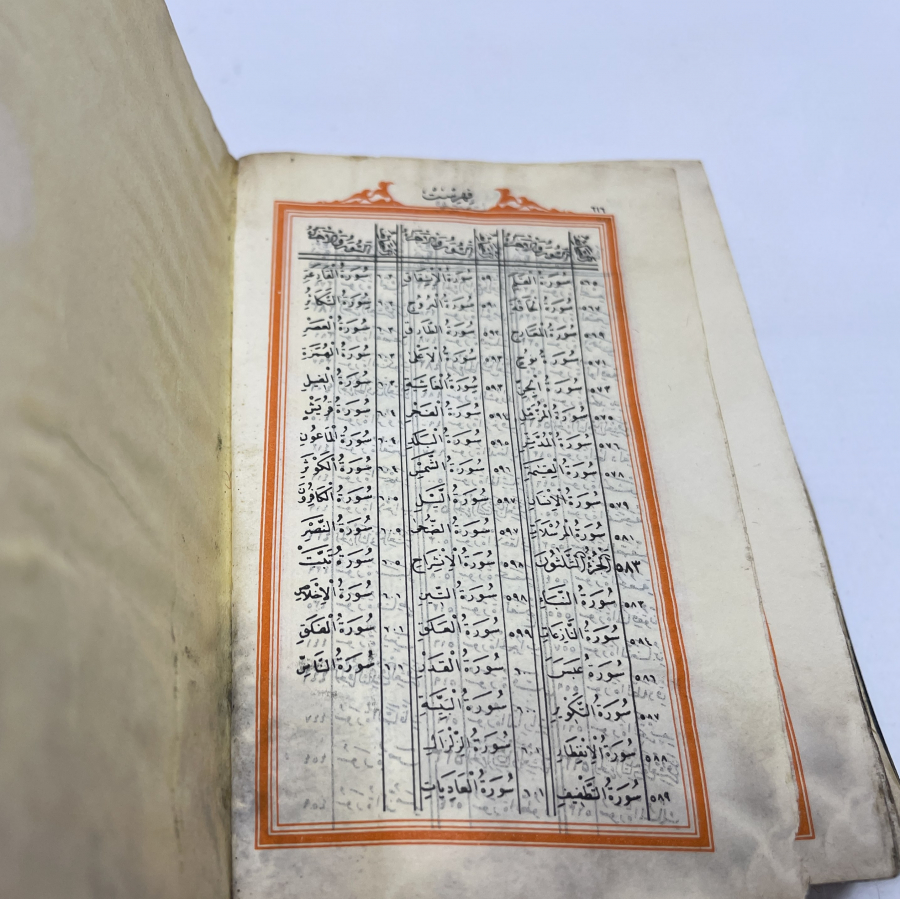 فهرست
٥٦٥ سورة القلم
٥٦٧ سورة الحاقة
٥٦٩ سورة المعارج
٥٧١ سورة نوح
٥٧٣ سورة الجن
٥٧٥ سورة المزمل
٥٧٦ سورة المدثر
٥٧٨ سورة القيمة
٥٧٩ سورة الانسان
٥٨١ سورة المرسلات
٥٨٣ الجزء الثلثون
٥٨٣ سورة النباء
٥٨٤ سورة النازعات
٥٨٦ سورة عبس
٥٨٧ سورة التكوير
٥٨٨ سورة الانفطار
٥٨٩ سورة التطفيف
سورة الانشقاق
سورة البروج
سورة الطارق
سورة الاعلى
٥٩٣ سورة الغاشية
سورة الفجر
٥٩٥ سورة البلد
٥٩٦ سورة الشمس
٥٩٧ سورة الليل
٥٩٧ سورة الضحى
٥٩٨ سورة الانشراح
٥٩٨ سورة التين
٥٩٩ سورة العلق
٦٠٠ سورة القدر
٦٠٠ سورة البينة
٦٠١ سورة الزلزال
٦٠١ سورة العاديات
سورة القارعة
سورة التكاثر
سورة العصر
سورة الهمزة
سورة الفيل
سورة قريش
سورة الماعون
سورة الكوثر
٦٠٥ سورة الكافرون
٦٠٥ سورة النصر
٦٠٥ سورة تبت
٦٠٦ سورة الاخلاص
٦٠٦ سورة الفلق
٦٠٦ سورة الناس